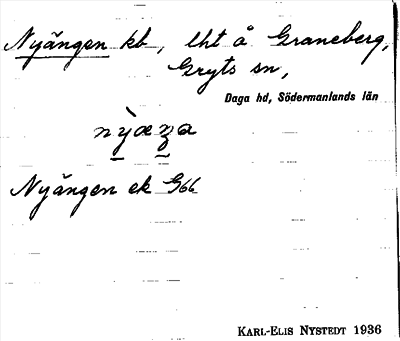 Nyängen kb, lht å Graneberg,
Gryts sn,
Daga hd, Södermanlands län
Nyängen ek G66
KARL-ELIS NYSTEDT 1936